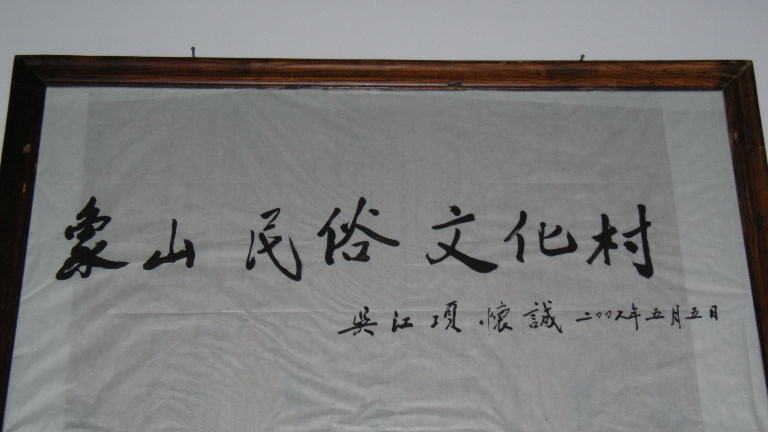 象山民俗文化村
吴江项怀誠 二〇〇九年五月五日